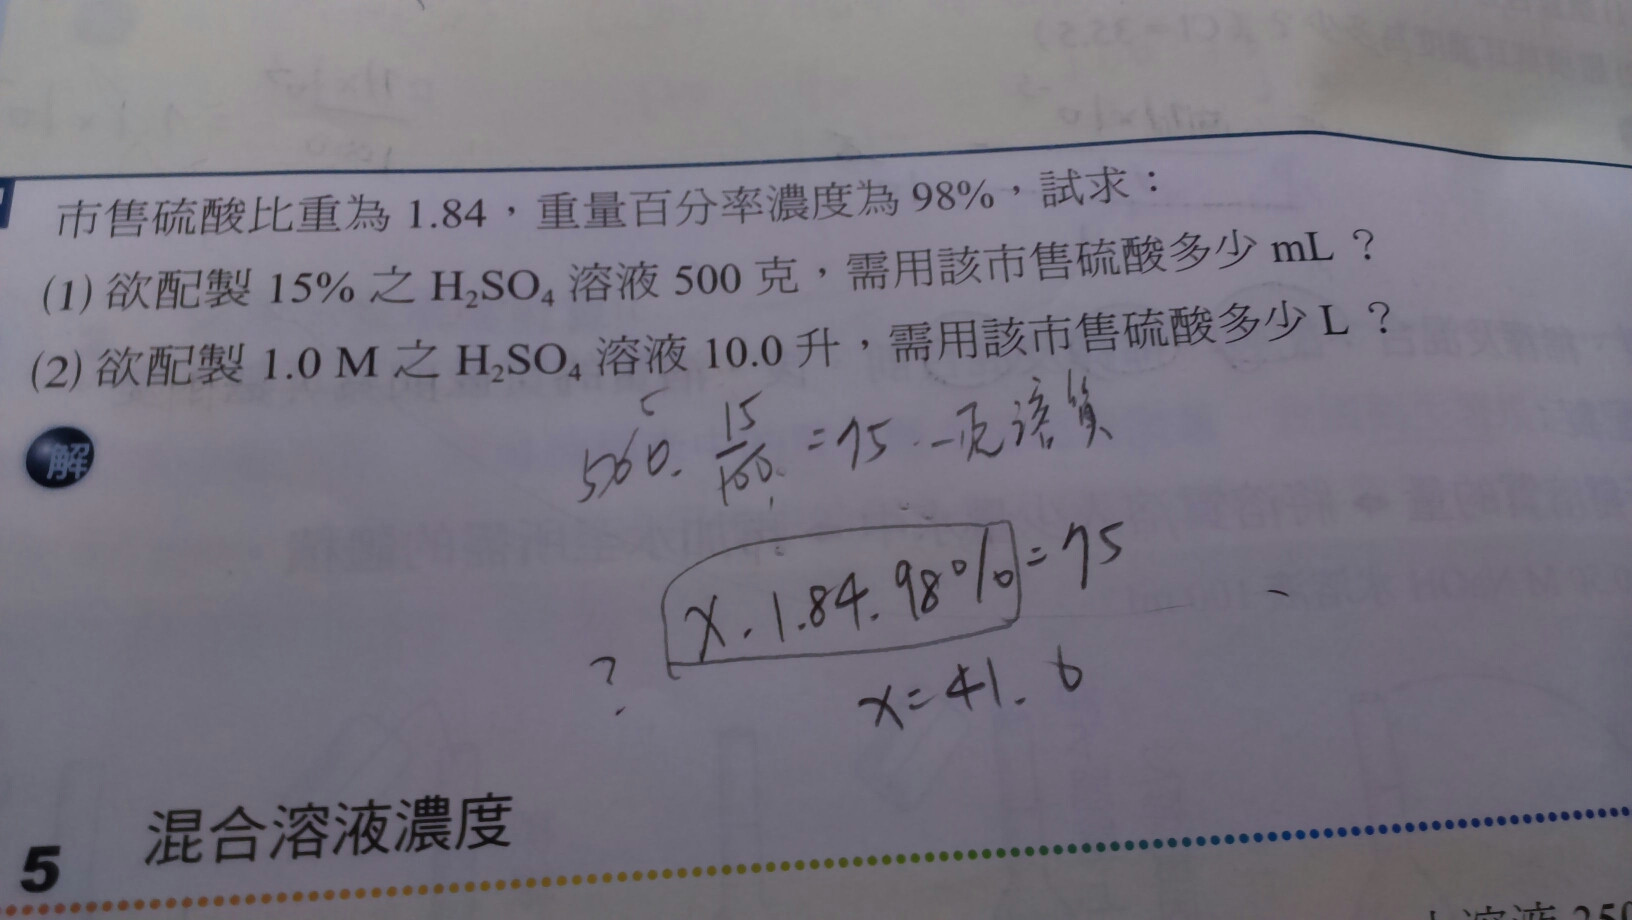 市售硫酸比重為 1.84，重量百分率濃度為 98%，試求：
(1) 欲配製 15% 之 H₂SO₄ 溶液 500 克，需用該市售硫酸多少 mL？
(2) 欲配製 1.0 M 之 H₂SO₄ 溶液 10.0 升，需用該市售硫酸多少 L？
解
5
500 · 15/100 = 75 溶質
x · 1.84 · 98% = 75
?
x = 41.6
5 混合溶液濃度
溶液 250